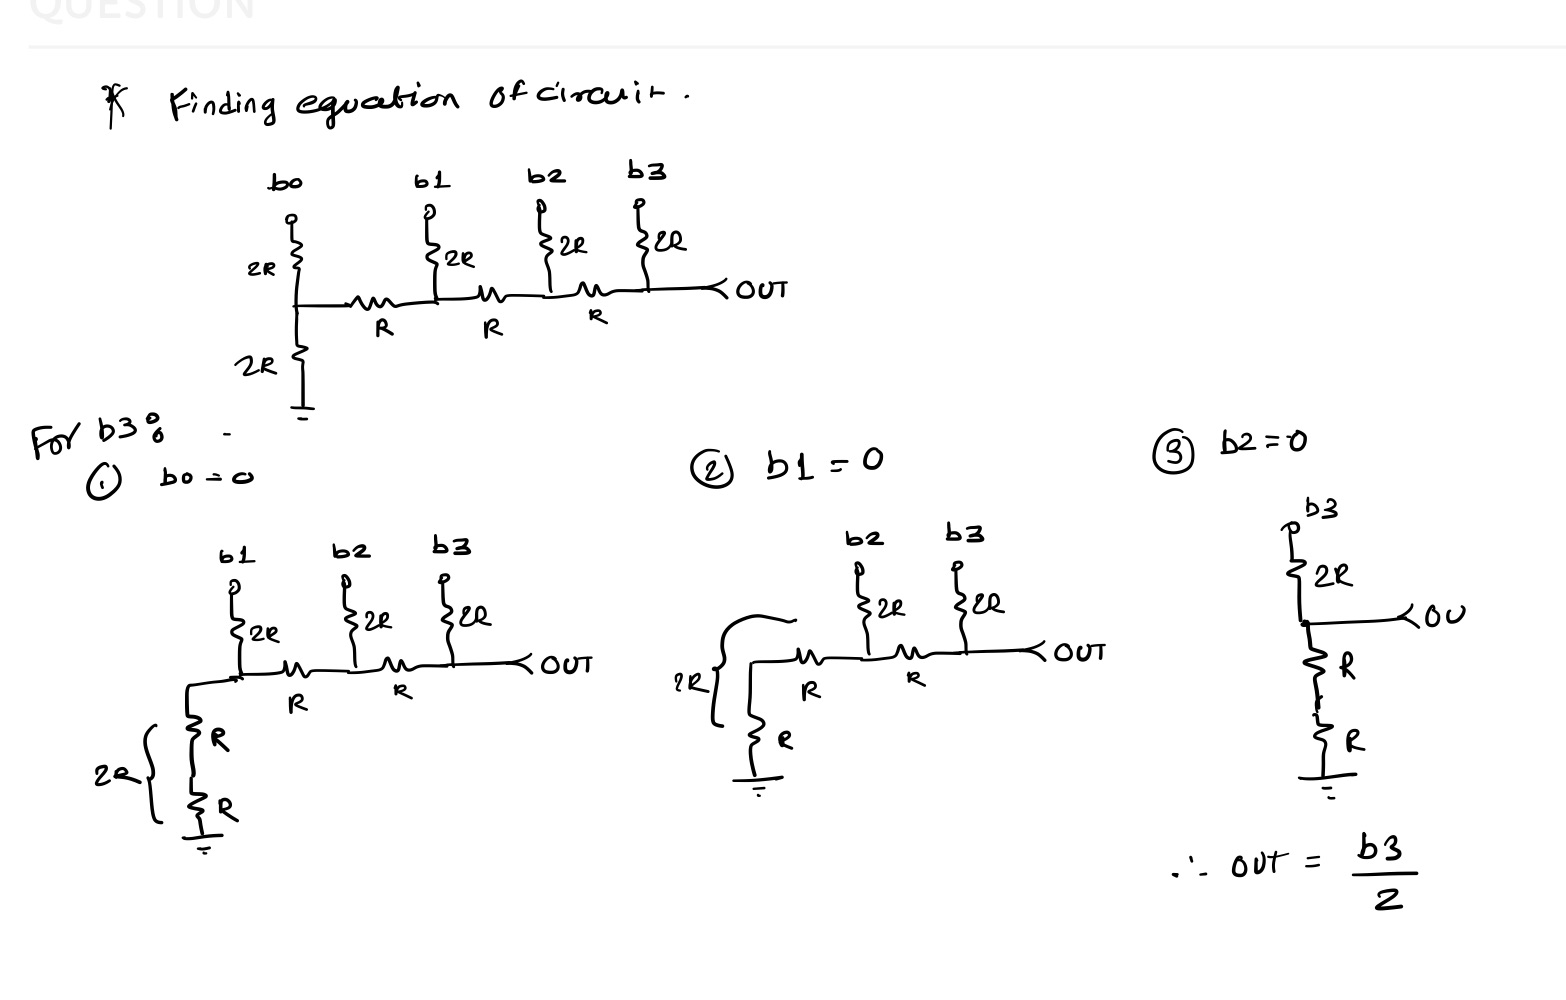 QUESTION
* Finding equation of circuit.
b0 b1 b2 b3
2R 2R 2R 2R
OUT
R R R
2R
For b3:
① b0 = 0
② b1 = 0
③ b2 = 0
b1 b2 b3
2R 2R 2R
OUT
R R
2R
R
R
b2 b3
2R 2R
OUT
2R
R R
R
b3
2R
OU
R
R
∴ OUT = b3
2